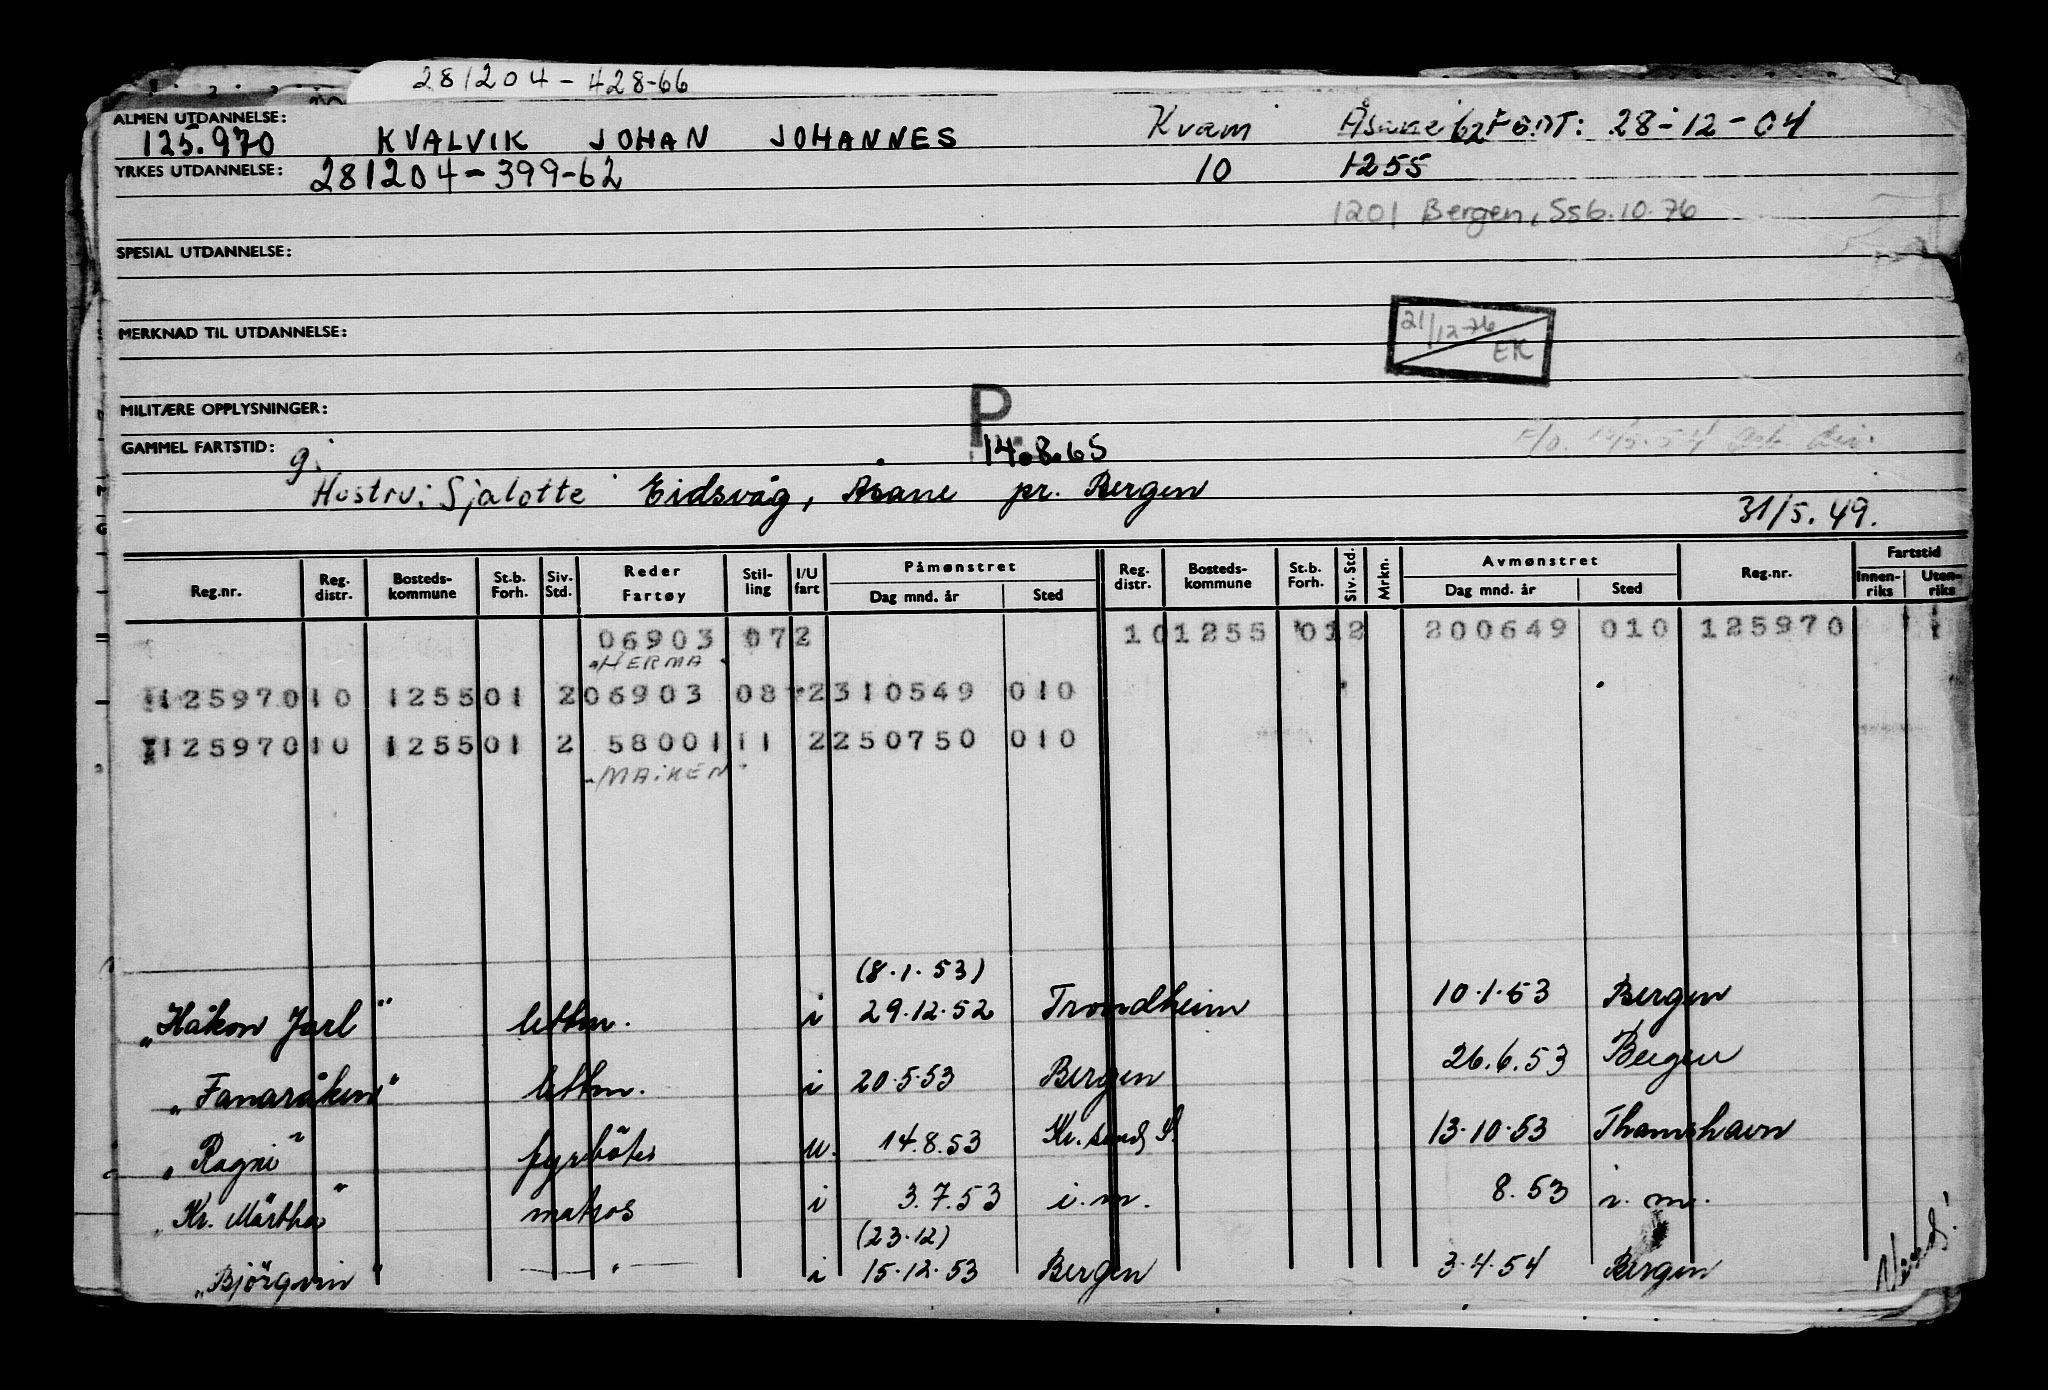 281204-428-66
ALMEN UTDANNELSE:
125.970 KVALVIK JOHAN JOHANNES Kvam Åsane 62 FØDT: 28-12-04
YRKES UTDANNELSE: 281204-399-62 10 1255
1201 Bergen, Ss 6.10.76
SPESIAL UTDANNELSE:
MERKNAD TIL UTDANNELSE:
21/12-76 EK
MILITÆRE OPPLYSNINGER:
P.
GAMMEL FARTSTID: 14.8.65
g.
Hustru: Sjalotte Eidsvåg, Åsane pr. Bergen
31/5.49.
Reg.nr. Reg. distr. Bosteds-kommune St.b. Forh. Siv. Std. Reder Fartøy Stil-ling I/U fart Påmønstret Dag mnd. år Sted Reg. distr. Bosteds-kommune St.b. Forh. Siv. Std. Mrkn. Avmønstret Dag mnd. år Sted Reg.nr. Fartstid Innen-riks Uten-riks
06903 072 10 1255 01 2 200649 010 125970
"HERMA"
125970 10 1255 01 2 06903 08 2 310549 010
125970 10 1255 01 2 58001 11 2 250750 010
"MAIKEN"
(8.1.53)
"Håkon Jarl" lettm. i 29.12.52 Trondheim 10.1.53 Bergen
"Fanaråken" lettm. i 20.5.53 Bergen 26.6.53 Bergen
"Ragni" fyrbøter u. 14.8.53 Kr.sand S. 13.10.53 Thamshavn
"Kr. Märtha" matros i 3.7.53 i.m. 8.53 i.m.
(23.12)
"Björgvin" — " — i 15.12.53 Bergen 3.4.54 Bergen